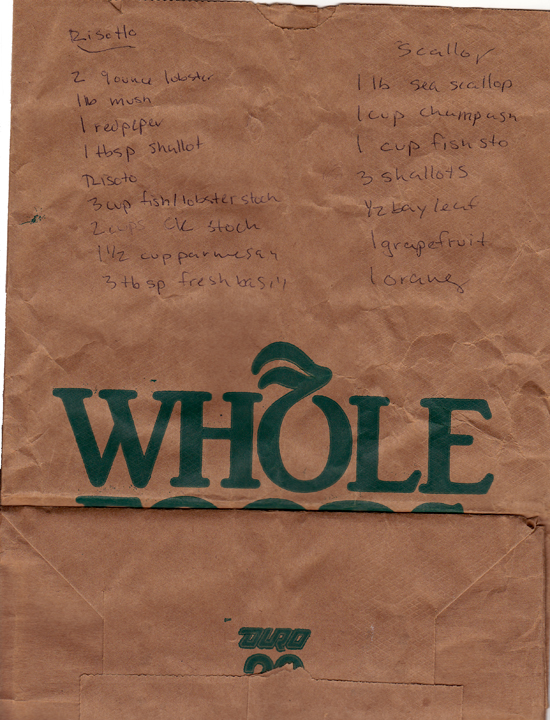 Risotto
2 9ounce lobster
1lb mush
1 redpeper
1 tbsp shallot
Risoto
3 cup fish/lobster stock
2 cups ck stock
1 1/2 cup parmesan
3 tbsp fresh basil
Scallop
1 lb sea scallop
1 cup champagn
1 cup fish sto
3 shallots
1/2 bay leaf
1 grapefruit
1 orang
WHOLE
DURO